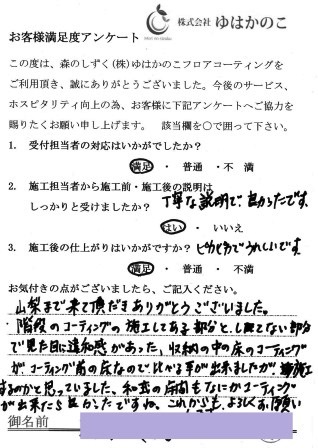 株式会社 ゆはかのこ
お客様満足度アンケート
この度は、森のしずく(株)ゆはかのこフロアコーティングを
ご利用頂き、誠にありがとうございました。今後のサービス、
ホスピタリティ向上の為、お客様に下記アンケートへご協力を
賜りたくお願い申し上げます。 該当欄を○で囲って下さい。
1. 受付担当者の対応はいかがでしたか?
満足 ・ 普通 ・不 満
2. 施工担当者から施工前・施工後の説明は
しっかりと受けましたか? 丁寧な説明で、良かったです。
はい ・ いいえ
3. 施工後の仕上がりはいかがですか? ピカピカでうれしいです。
満足 ・ 普通 ・ 不満
お気付きの点がございましたら、ご記入ください。
山梨まで来て頂だきありがとうございました。
階段のコーティングの施工してある部分と、してない部分
で見た目に違和感があった、収納の中の床のコーティング
がコーティング前の床なので比べる事が出来ましたが
するのかと思っていました、和室の床間もなにかコーティング
が出来たら良かったですね、これからも、よろしくお願い
御名前